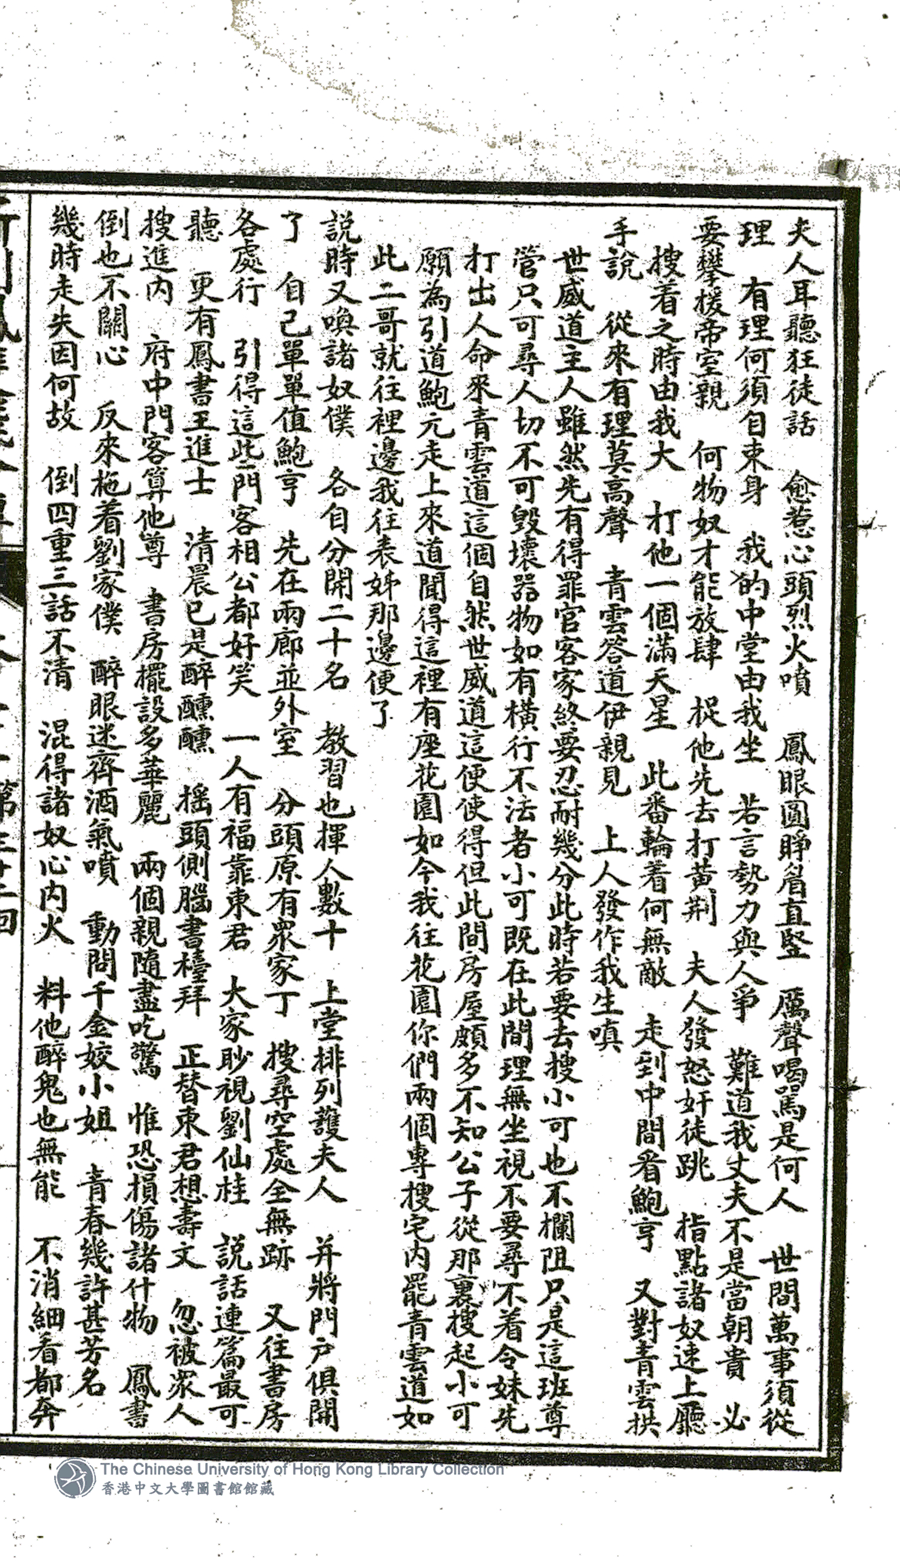 夫人耳聽狂徒話　愈惹心頭烈火噴　鳳眼圓睜眉直竪　厲聲喝罵是何人　世間萬事須從
理　有理何須自束身　我的中堂由我坐　若言勢力與人爭　難道我丈夫不是當朝貴　必
要攀援帝室親　何物奴才能放肆　捉他先去打黃荆　夫人發怒奸徒跳　指點諸奴速上廳
搜着之時由我大　打他一個滿天星　此番輪着何無敵　走到中間看鮑亨　又對青雲拱
手說　從來有理莫高聲　青雲答道伊親見　上人發作我生嗔
世威道主人雖然先有得罪官客家終要忍耐幾分此時若要去搜小可也不攔阻只是這班尊
管只可尋人切不可毀壞器物如有橫行不法者小可既在此間理無坐視不要尋不着令妹先
打出人命來青雲道這個自然世威道這便使得但此間房屋頗多不知公子從那裏搜起小可
願為引道鮑亢走上來道聞得這裡有座花園如今我往花園你們兩個專搜宅內罷青雲道如
此二哥就往裡邊我往表姊那邊便了
說時又喚諸奴僕　各自分開二十名　教習也揮人數十　上堂排列護夫人　并將門戶俱開
了　自己單單值鮑亨　先在兩廊並外室　分頭原有眾家丁　搜尋空處全無跡　又往書房
各處行　引得這些門客相公都好笑　一人有福靠東君　大家眇視劉仙桂　說話連篇最可
聽　更有鳳書王進士　清晨已是醉醺醺　搖頭側腦書檯拜　正替東君想壽文　忽被眾人
搜進內　府中門客算他尊　書房擺設多華麗　兩個親隨盡吃驚　惟恐損傷諸什物　鳳書
倒也不關心　反來拖着劉家僕　醉眼迷齊酒氣噴　動問千金姣小姐　青春幾許甚芳名
幾時走失因何故　倒四重三話不清　混得諸奴心內火　料他醉鬼也無能　不消細看都奔
The Chinese University of Hong Kong Library Collection
香港中文大學圖書館館藏